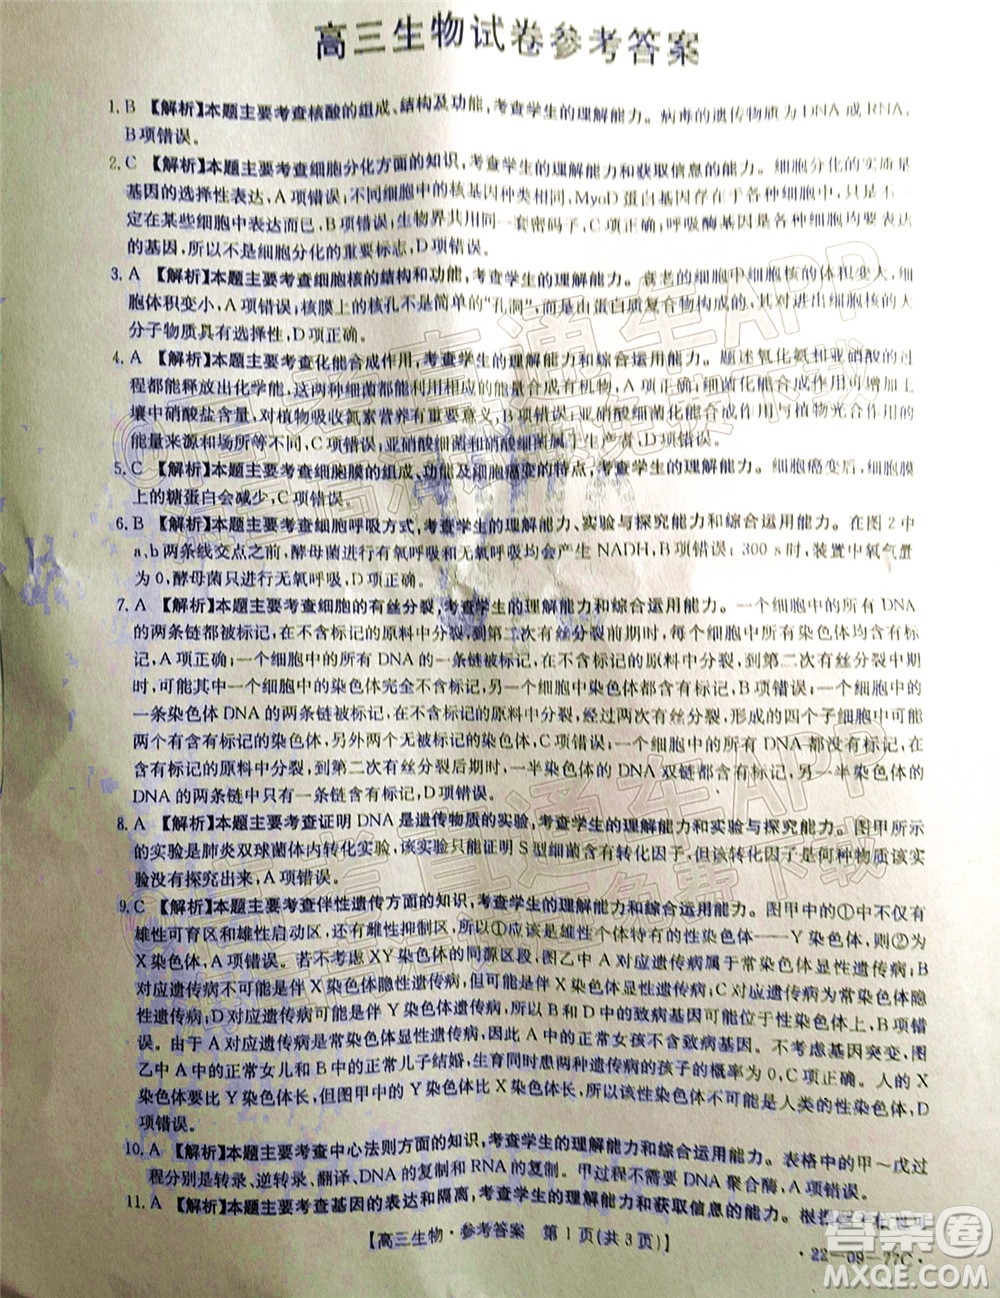 高三生物试卷参考答案
1. B 【解析】本题主要考查核酸的组成、结构及功能,考查学生的理解能力。病毒的遗传物质为 DNA 或 RNA,
B 项错误。
2. C 【解析】本题主要考查细胞分化方面的知识,考查学生的理解能力和获取信息的能力。细胞分化的实质是
基因的选择性表达,A 项错误;不同细胞中的核基因种类相同,MyoD 蛋白基因存在于每种细胞中,只是不一
定在某些细胞中表达而已,B 项错误;生物界共用同一套密码子,C 项正确;呼吸酶基因是各种细胞都要表达
的基因,所以不是细胞分化的重要标志,D 项错误。
3. A 【解析】本题主要考查细胞核的结构和功能,考查学生的理解能力。衰老的细胞中细胞核的体积变大,细
胞体积变小,A 项错误;核膜上的核孔不是简单的“孔洞”,而是由蛋白质复合物构成的,其对进出细胞核的大
分子物质具有选择性,D 项正确。
4. A 【解析】本题主要考查化能合成作用,考查学生的理解能力和综合运用能力。题述氧化氨和亚硝酸的过
程都能释放出化学能,这两种细菌都能利用相应的能量合成有机物,A 项正确;
壤中硝酸盐含量的增加,对植物吸收氮素营养有重要作用,B 项错误;硝酸细菌化能合成作用与植物光合作用
能量来源和场所等不同,C 项错误;亚硝酸细菌和硝酸细菌
5. C 【解析】本题主要考查细胞膜的组成、功能及细胞癌变的特点,考查学生的理解能力。细胞癌变后,细胞膜
上的糖蛋白会减少,C 项错误。
6. B 【解析】本题主要考查细胞呼吸方式,考查学生的理解能力、实验与探究能力和综合运用能力。在图 2 中
a、b 两条线交点之前,酵母菌有氧呼吸和无氧呼吸均会产生 NADH,B 项错误;300 s 时,装置中氧气量
为 0,酵母菌只进行无氧呼吸,D 项正确。
7. A 【解析】本题主要考查细胞的有丝分裂,考查学生的理解能力和综合运用能力。一个细胞中的所有 DNA
的两条链都被标记,在不含标记的原料中分裂,到第二次有丝分裂中期时,每个细胞中所有染色体均含有标
记,A 项正确;一个细胞中的所有 DNA 的一条链被标记,在不含标记的原料中分裂,到第二次有丝分裂中期
时,可能其中的一个细胞中的染色体完全不含标记,也可能部分染色体含有标记,B 项错误;一个细胞中的
一条染色体 DNA 的两条链被标记,在不含标记的原料中分裂,经过两次有丝分裂,形成的四个子细胞中可能
两个含有含有标记的染色体,另外两个无被标记的染色体,C 项错误;一个细胞中的所有 DNA 都没有标记,在
含有标记的原料中分裂,到第二次有丝分裂中期时,一半染色体的 DNA 双链都含有标记,另一半染色体的
DNA 的两条链中只有一条链含有标记,D 项错误。
8. A 【解析】本题主要考查证明 DNA 是遗传物质的实验,考查学生的理解能力和实验与探究能力。图甲所示
的实验是肺炎双球菌体内转化实验,该实验只能证明 S 型细菌含有转化因子,转化因子是何种物质该实验
没有探究出来,A 项错误。
9. C 【解析】本题主要考查伴性遗传方面的知识,考查学生的理解能力和综合运用能力。图甲中的①中不仅有
雄性可育区和雄性启动区,还有雌性抑制区,所以①应该是雄性个体特有的性染色体——Y 染色体,则②为
X 染色体,A 项错误。若不考虑 XY 染色体的同源区段,图乙中 A 对应遗传病属于常染色体显性遗传病;B
对应遗传病不可能是伴 X 染色体隐性遗传病;C 对应遗传病可能是伴 X 染色体显性遗传病或常染色体显性
遗传病;D 对应遗传病可能是伴 Y 染色体遗传病。所以 B、C、D 中的致病基因可能位于性染色体上,B 项错
误。由于 A 对应遗传病为常染色体显性遗传病,因此 A 中的正常女孩不含致病基因。不考虑基因突变,图
乙中 A 中的正常女儿和 B 中的正常儿子结婚,生育同时患两种遗传病的孩子的概率为 0,C 项正确。人的 X
染色体要比 Y 染色体长,但图甲中 Y 染色体比 X 染色体长,所以该性染色体不可能是人类的性染色体,D
项错误。
10. A 【解析】本题主要考查中心法则方面的知识,考查学生的理解能力和综合运用能力。表格中的甲~戊过
程分别是转录、逆转录、翻译、DNA 的复制和 RNA 的复制。甲过程不需要 DNA 聚合酶,A 项错误。
11. A 【解析】本题主要考查基因的表达和隔离,考查学生的理解能力和综合运用能力。
【高三生物·参考答案 第 1 页(共 3 页)】
·22-09-77C·
答案圈
MXQE.COM